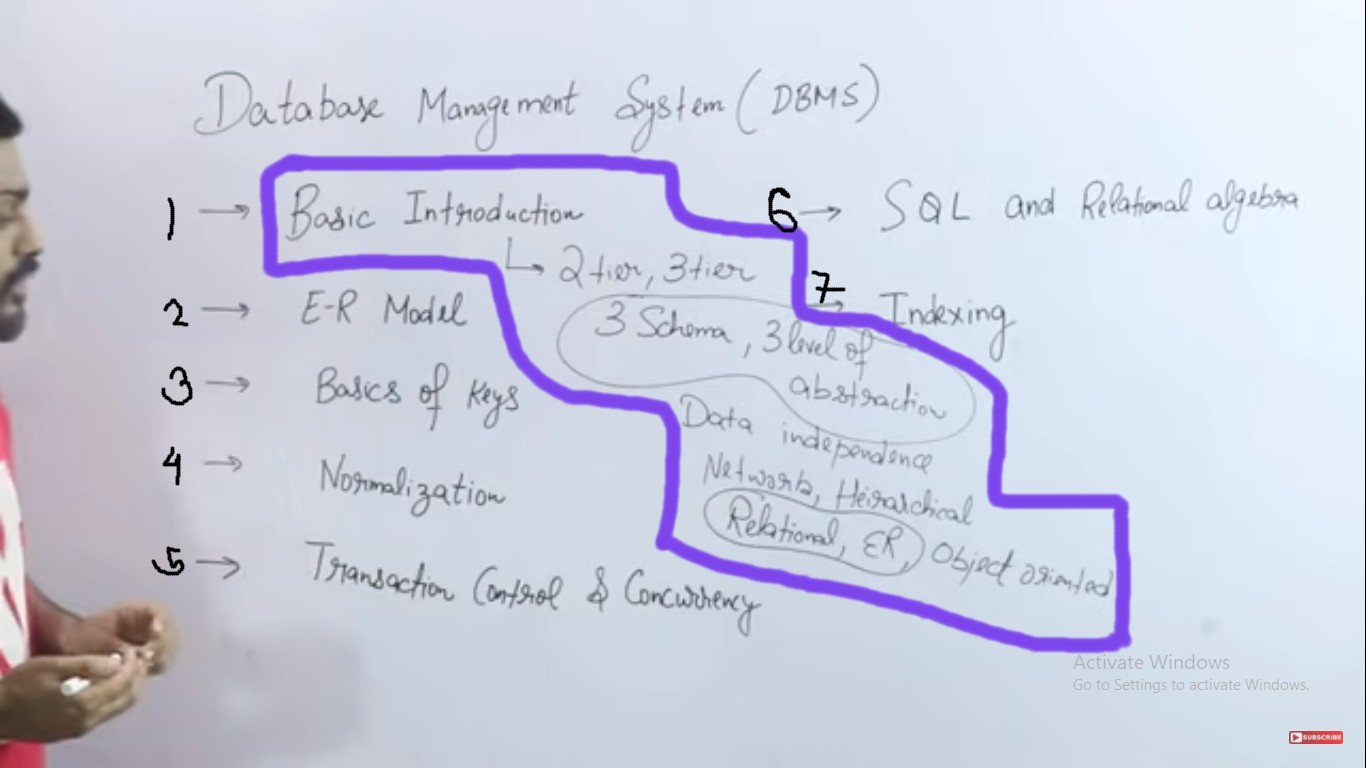 Database Management System (DBMS)
1 → Basic Introduction
↳ 2 tier, 3 tier
3 Schema, 3 level of
abstraction
Data independence
Networks, Heirarchical
Relational, ER, Object oriented
2 → E-R Model
3 → Basics of Keys
4 → Normalization
5 → Transaction Control & Concurrency
6 → SQL and Relational algebra
7 → Indexing
Activate Windows
Go to Settings to activate Windows.
SUBSCRIBE